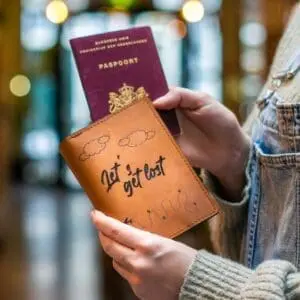 EUROPESE UNIE
KONINKRIJK DER NEDERLANDEN
PASPOORT
Let's
get lost